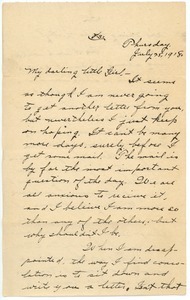 Thursday
July 25, 1918
My darling little Girl:-
It seems
as though I am never going
to get another letter from you
but nevertheless I just keep
on hoping. It can't be many
more days, surely before I
get some mail. The mail is
by far the most important
question of the day. We are
so anxious to receive it,
and I believe I am more so
than any of the others, but
why shouldn't I be.
When I am disap-
pointed, the way I find conso-
lation is to sit down and
write you a letter. But that